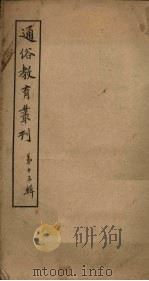 通俗教育叢刊
第十五輯
www.duxuu.com